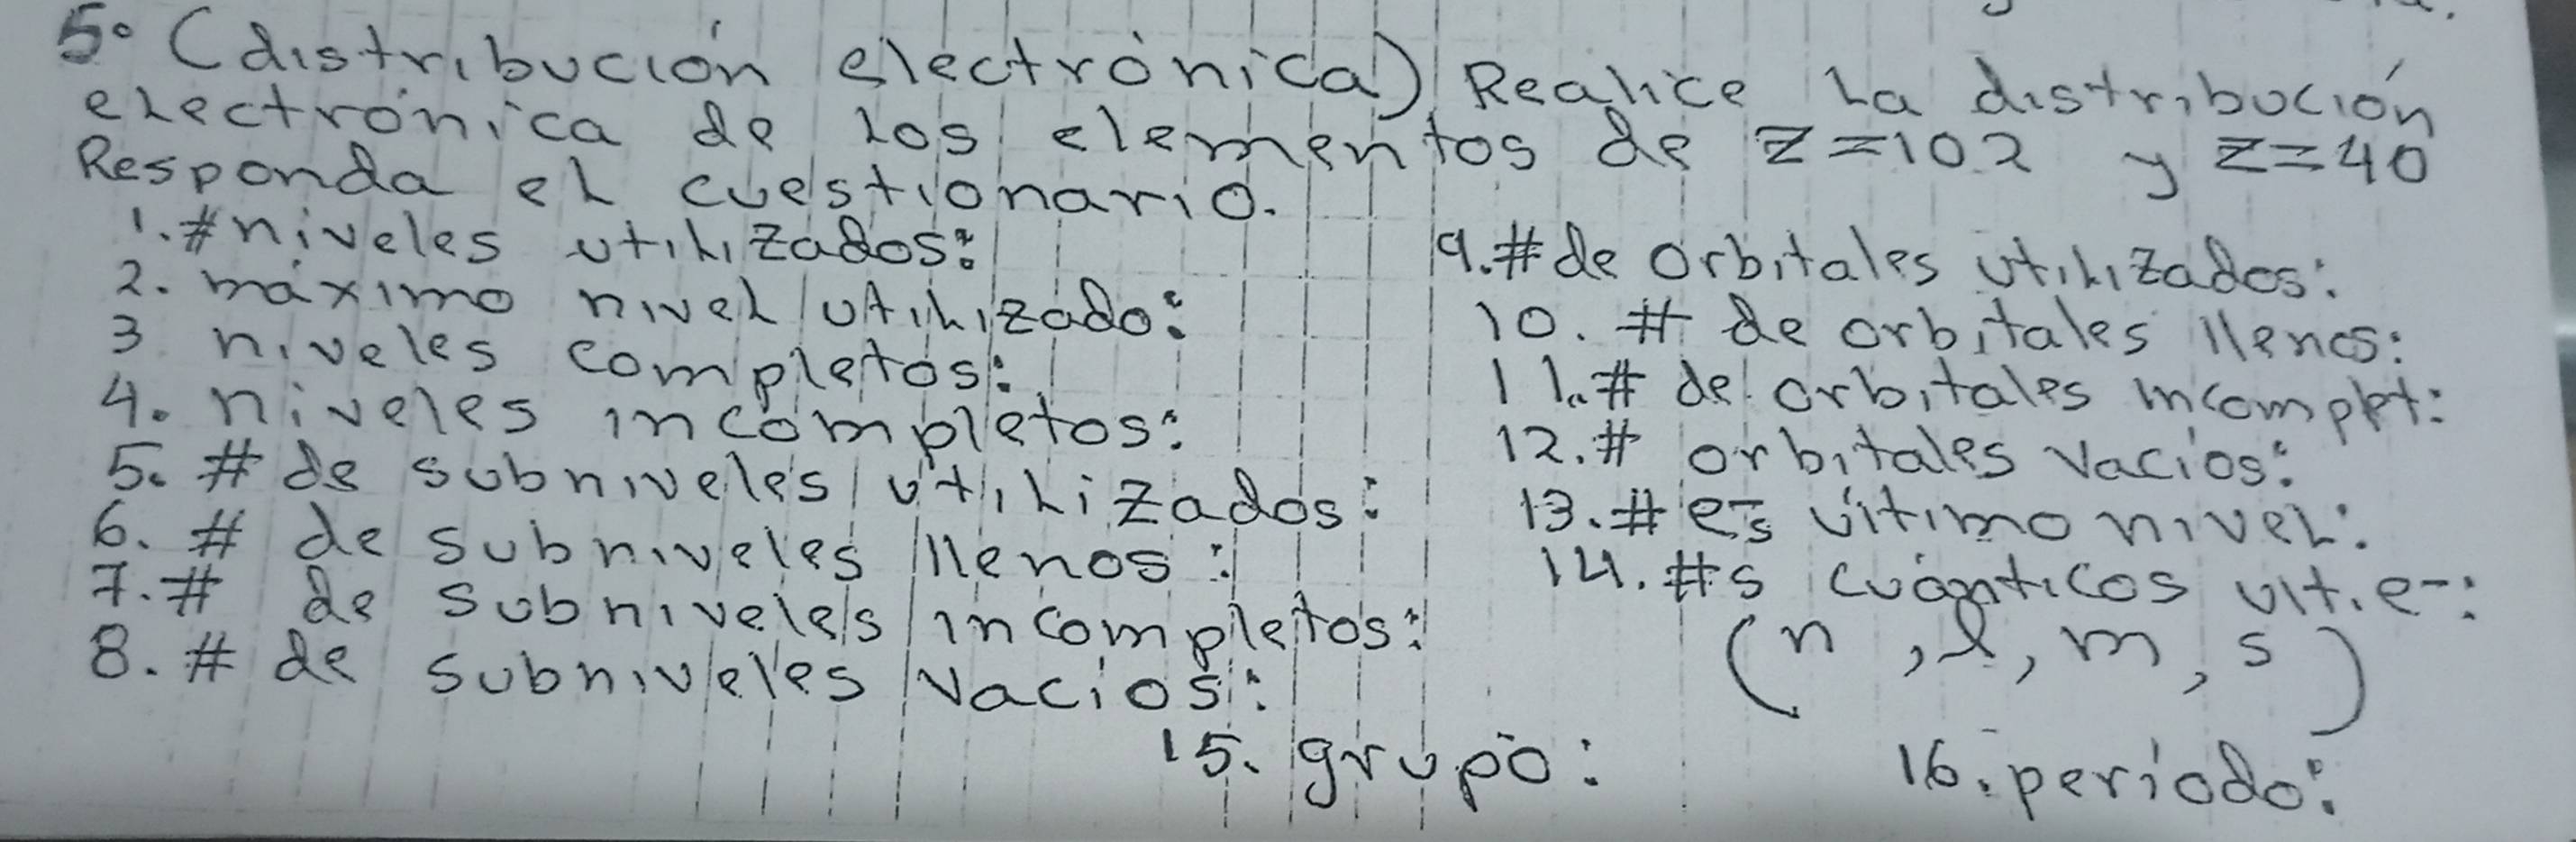 5° (distribución electrónica) Realice La distribución
electrónica de los elementos de Z=102 y Z=40
Responda el cuestionario.
1. #niveles utilizados:
2. máximo nivel utilizado:
3 niveles completos:
4. niveles incompletos:
5. # de subniveles utilizados:
6. # de subniveles llenos:
7. # de subniveles incompletos:
8. # de subniveles vacios:
9. # de orbitales utilizados:
10. # de orbitales llenos:
11. # de orbitales incomplet:
12. # orbitales vacios:
13. # e-s último nivel:
14. #s cuánticos ult. e-:
(n, l, m, s)
15. grupo: 16. periodo: